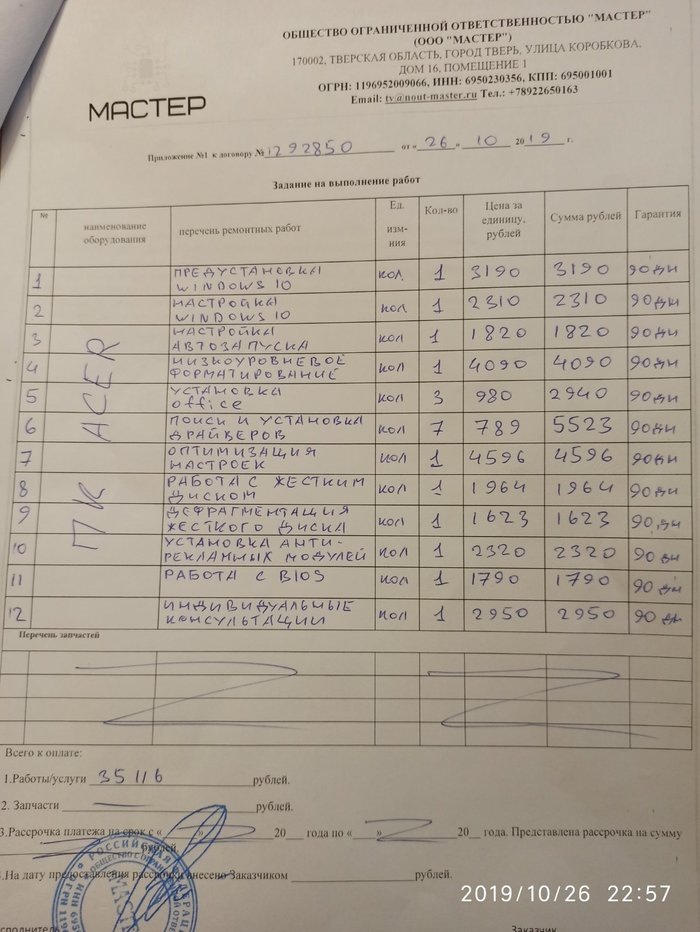 ОБЩЕСТВО ОГРАНИЧЕННОЙ ОТВЕТСТВЕННОСТЬЮ "МАСТЕР"
(ООО "МАСТЕР")
170002, ТВЕРСКАЯ ОБЛАСТЬ, ГОРОД ТВЕРЬ, УЛИЦА КОРОБКОВА,
ДОМ 16, ПОМЕЩЕНИЕ 1
ОГРН: 1196952009066, ИНН: 6950230356, КПП: 695001001
Email: tv@nout-master.ru Тел.: +78922650163
МАСТЕР
Приложение №1 к договору № 1292850 от «26» 10 2019 г.
Задание на выполнение работ
№ наименование оборудования перечень ремонтных работ Ед. изм-ния Кол-во Цена за единицу, рублей Сумма рублей Гарантия
ПК ACER
1 ПРЕДУСТАНОВКА WINDOWS 10 кол. 1 3190 3190 90 дн
2 НАСТРОЙКА WINDOWS 10 кол 1 2310 2310 90 дн
3 НАСТРОЙКА АВТОЗАПУСКА кол 1 1820 1820 90 дн
4 НИЗКОУРОВНЕВОЕ ФОРМАТИРОВАНИЕ кол 1 4090 4090 90 дн
5 УСТАНОВКА office кол 3 980 2940 90 дн
6 ПОИСК И УСТАНОВКА ДРАЙВЕРОВ кол 7 789 5523 90 дн
7 ОПТИМИЗАЦИЯ НАСТРОЕК кол 1 4596 4596 90 дн
8 РАБОТА С ЖЕСТКИМ ДИСКОМ кол 1 1964 1964 90 дн
9 ДЕФРАГМЕНТАЦИЯ ЖЕСТКОГО ДИСКА кол 1 1623 1623 90 дн
10 УСТАНОВКА АНТИ-РЕКЛАМНЫХ МОДУЛЕЙ кол 1 2320 2320 90 дн
11 РАБОТА С BIOS кол 1 1790 1790 90 дн
12 ИНДИВИДУАЛЬНЫЕ КОНСУЛЬТАЦИИ кол 1 2950 2950 90 дн
Перечень запчастей
Всего к оплате:
1.Работы/услуги 35116 рублей.
2. Запчасти — рублей.
3.Рассрочка платежа на срок с « » 20 года по « » 20 года. Представлена рассрочка на сумму
рублей.
.На дату предоставления рассрочки внесено Заказчиком рублей.
РОССИЙСКАЯ ФЕДЕРАЦ
ОБЩЕСТВО С ОГРАН
2019/10/26 22:57
Заказчик